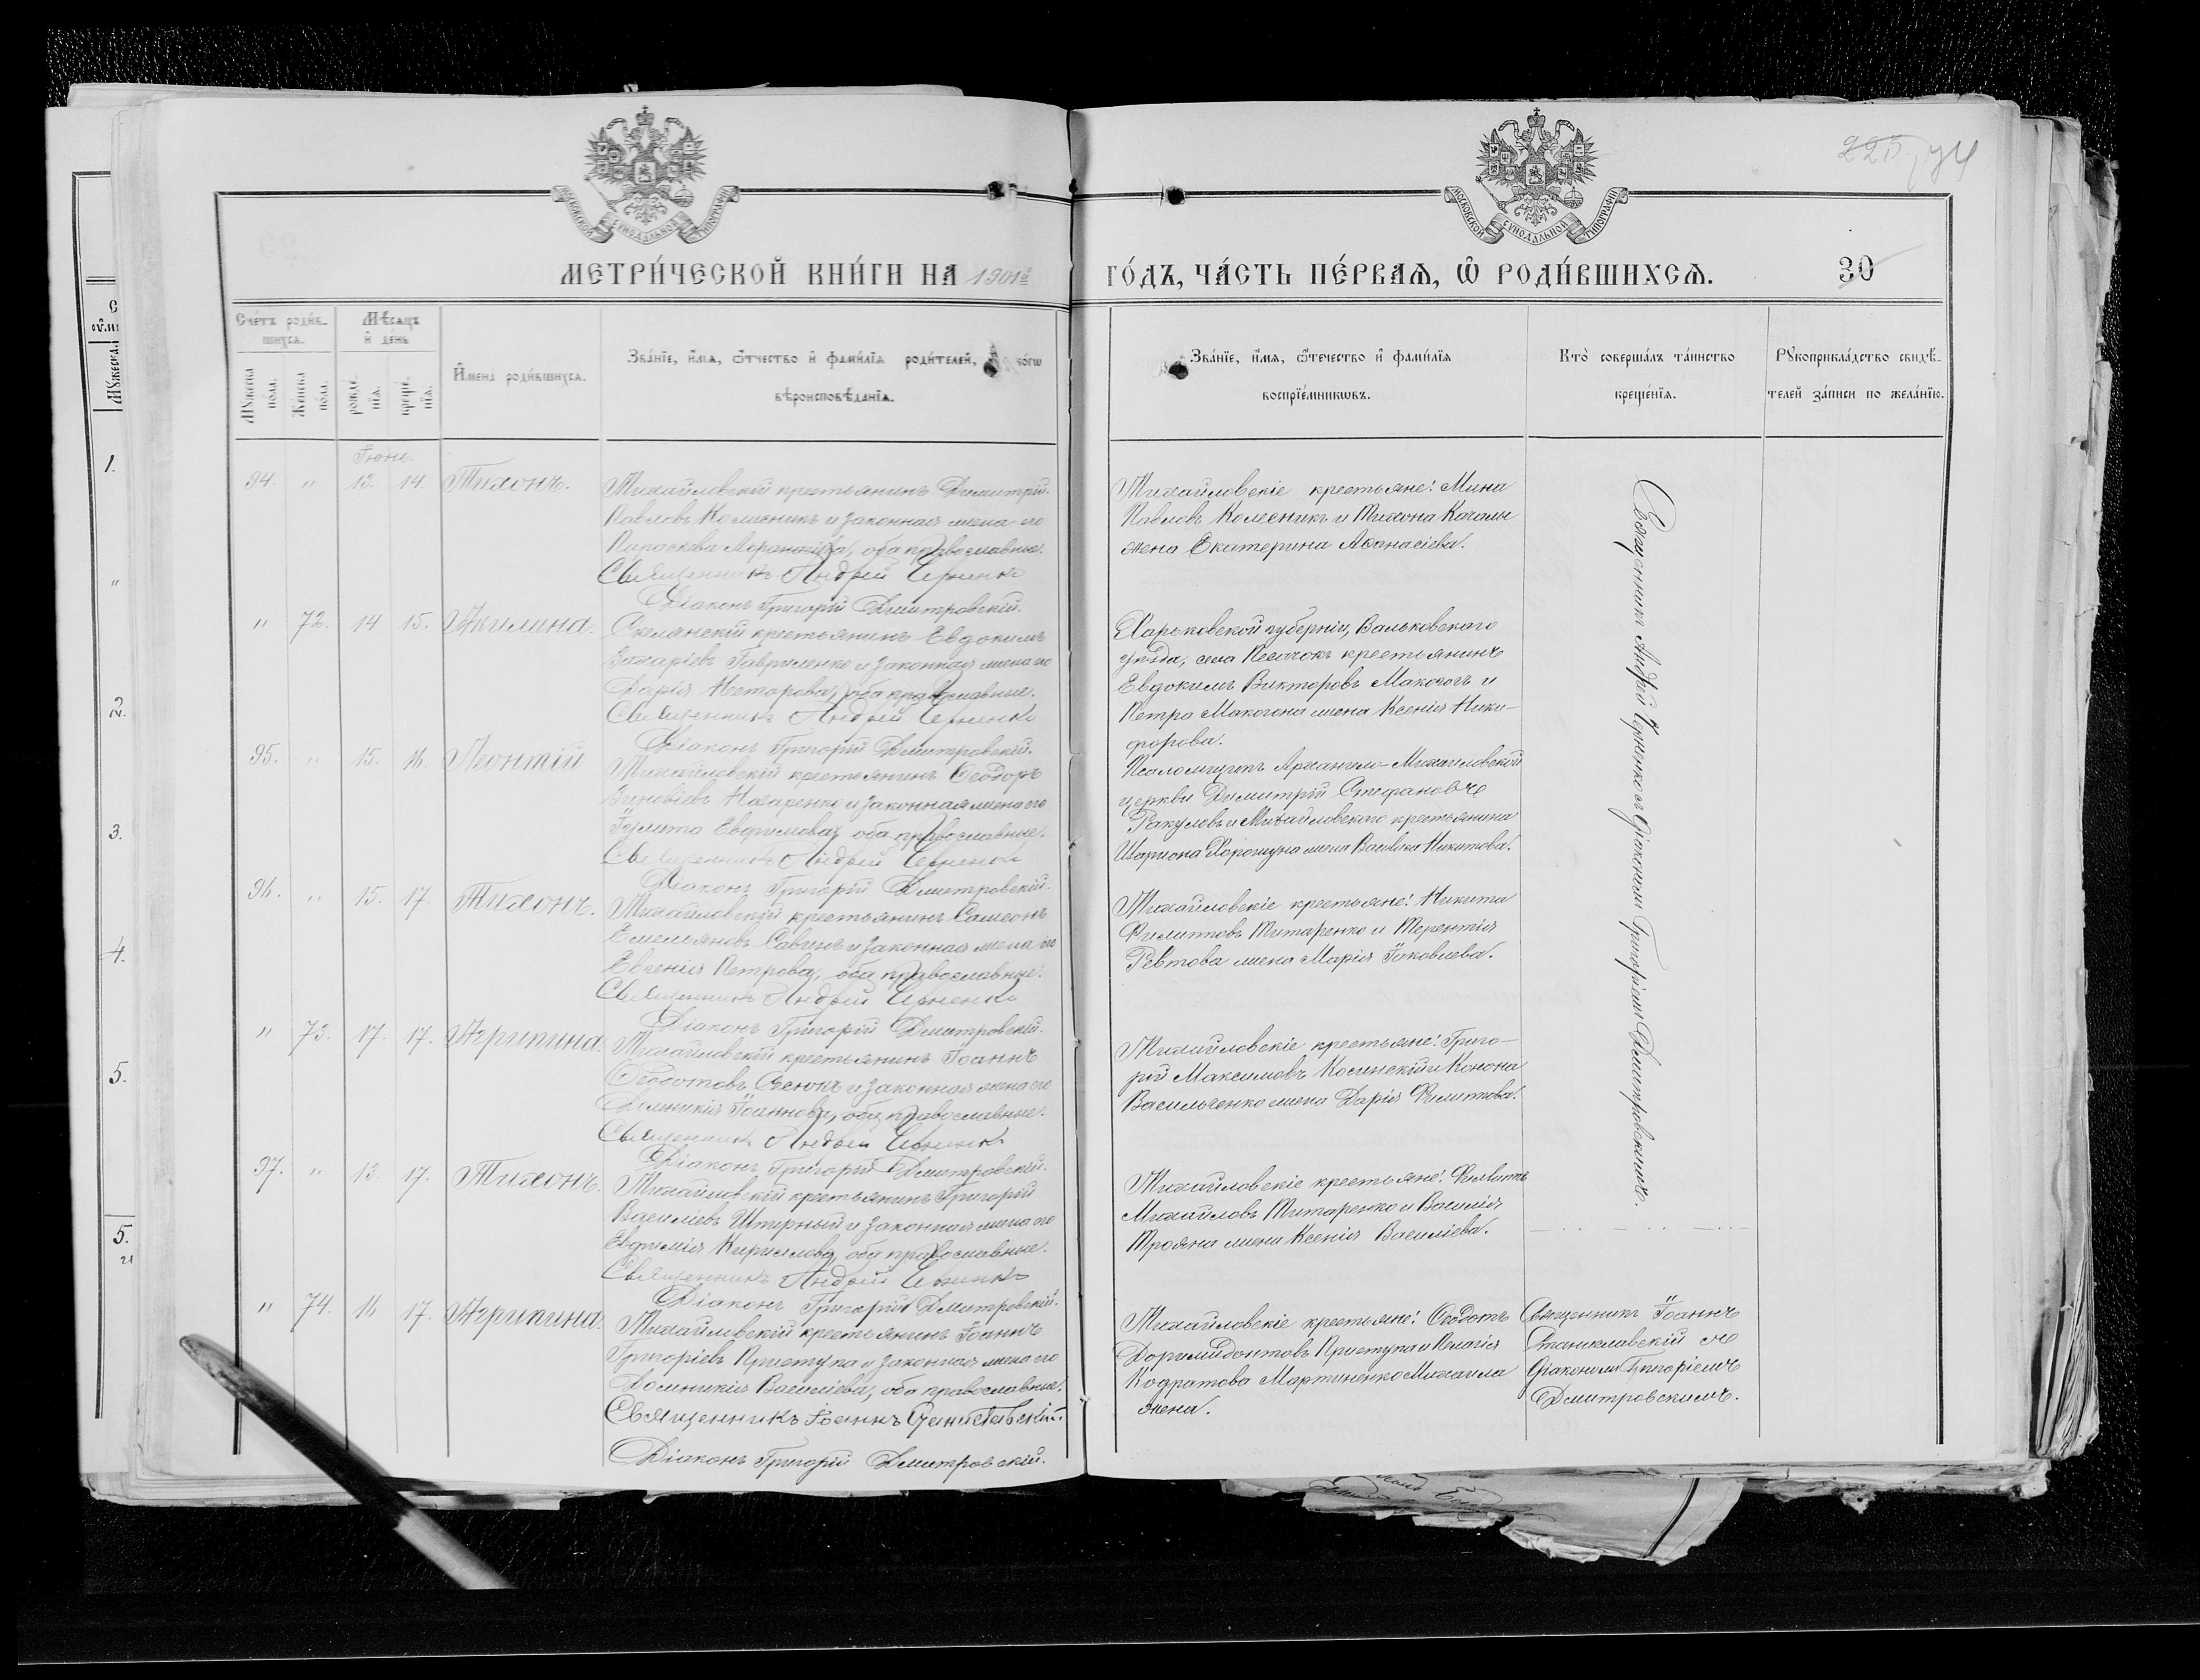 225
МОСКОВСКОЙ СѴНОДАЛЬНОЙ ТИПОГРАФІИ
МОСКОВСКОЙ СѴНОДАЛЬНОЙ ТИПОГРАФІИ
МЕТРИ́ЧЕСКОЙ КНИ́ГИ НА 1901й
ГО́ДЪ, ЧА́СТЬ ПЕ́РВАѦ, Ѡ҆ РОДИ́ВШИХСѦ. 30
Сче́тъ роди́в-
шихсѧ.
Мꙋжеска по́ла.
Женска по́ла.
Мѣ́сѧцъ и҆ де́нь
рожде́нїѧ.
креще́нїѧ.
И҆мена̀ роди́вшихсѧ.
Зва́нїе, и҆́мѧ, ѻ҆́тчество и҆ фами́лїѧ роди́телей, и҆ ко́гѡ
вѣроисповѣ́данїѧ.
Зва́нїе, и҆́мѧ, ѻ҆те́чество и҆ фами́лїѧ
воспрїе́мникѡвъ.
Кто̀ соверша́лъ та́инство
креще́нїѧ.
Рꙋкоприкла́дство свидѣ́-
телей за́писи по жела́нїю.
Іюнь.
94. " 13. 14. Тихонъ.
Михайловскій крестьянинъ Димитрій
Павловъ Колисникъ и законная жена его
Параскева Аѳанасіева, оба православные.
Священникъ Андрей Черненко
Діаконъ Григорій Дмитровскій.
Михайловскіе крестьяне: Мина
Павловъ Колесникъ и Тихона Качалы
жена Екатерина Аѳанасіева.
" 72. 14 15. Акилина.
Скелянскій крестьянинъ Евдокимъ
Захаріевъ Гавриленко и законная жена его
Дарія Несторова, оба православные.
Священникъ Андрей Черненко
Діаконъ Григорій Дмитровскій.
Харьковской губерніи, Вальковскаго
уѣзда, села Песочокъ крестьянинъ
Евдокимъ Викторовъ Макогогъ и
Петра Макогона жена Ксенія Ники-
форова.
95. " 15. 16. Леонтій
Михайловскій крестьянинъ Ѳеодоръ
Зиновіевъ Назаренко и законная жена его
Іулита Евфимова, оба православные.
Священникъ Андрей Черненко
Діаконъ Григорій Дмитровскій.
Псаломщикъ Архангело-Михаиловской
церкви Димитрій Стефановъ
Ракуловъ и Михайловскаго крестьянина
Иларіона Хорошуна жена Никитова.
96. " 15. 17. Тихонъ.
Михайловскій крестьянинъ Самсонъ
Емельяновъ Савинъ и законная жена его
Евгенія Петрова, оба православные.
Священникъ Андрей Черненко
Діаконъ Григорій Дмитровскій.
Михайловскіе крестьяне: Никита
Филиповъ Титаренко и Терентія
Ревтова жена Марія Іаковлева.
" 73. 17. 17. Агрипина.
Михайловскій крестьянинъ Іоаннъ
Ѳеодотовъ и законная жена его
Домникія Іоаннова, оба православные.
Священникъ Андрей Черненко
Діаконъ Григорій Дмитровскій.
Михайловскіе крестьяне: Григо-
рій Максимовъ Косинскій и Конона
Васильченко жена Дарія Филиппова.
97. " 13. 17. Тихонъ.
Михайловскій крестьянинъ Григорій
Василіевъ Штирный и законная жена его
Евфимія Кириллова, оба православные.
Священникъ Андрей Черненко
Діаконъ Григорій Дмитровскій.
Михайловскіе крестьяне: Филиппъ
Михайловъ Титаренко и Василія
Трояна жена Ксенія Василіева.
Священникъ Андрей Черненко съ діакономъ Григоріемъ Дмитровскимъ.
" 74. 16 17. Агрипина.
Михайловскій крестьянинъ Іоаннъ
Григоріевъ Приступа и законная жена его
Домникія Василіева, оба православные.
Священникъ Іоаннъ Станиславскій.
Діаконъ Григорій Дмитровскій.
Михайловскіе крестьяне: Ѳеодотъ
Доримидонтовъ Приступа и Пелагія
Кодратова Мартиненко Михаила
жена.
Священникъ Іоаннъ
Станиславскій съ
діакономъ Григоріемъ
Дмитровскимъ.
1.
"
2.
3.
4.
5.
5.